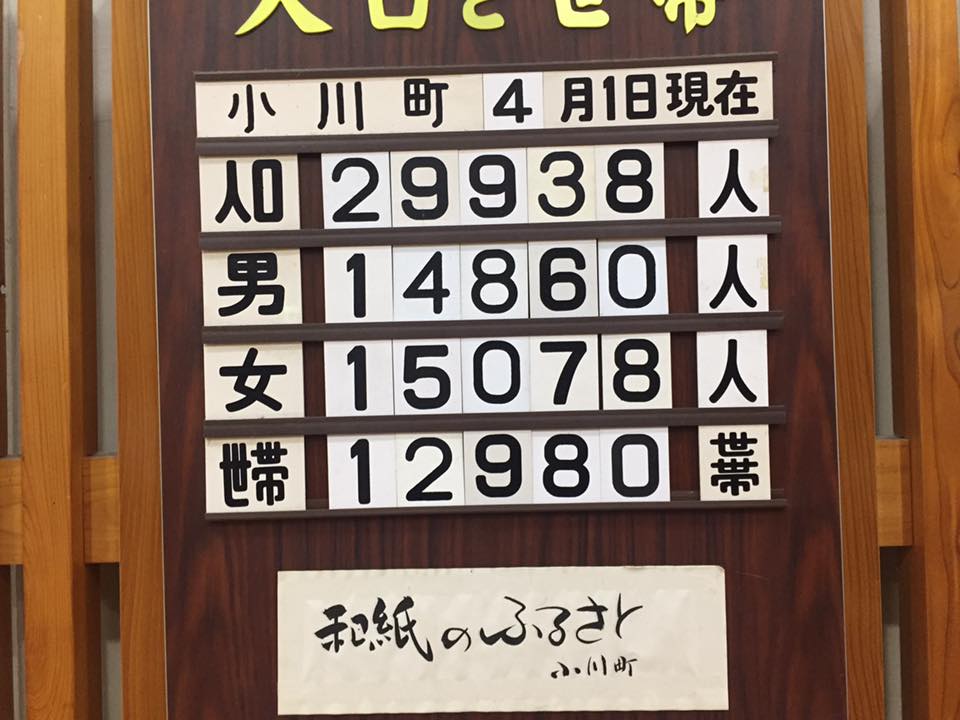 人口と世帯
小川町 4月1日現在
人口 29938人
男 14860人
女 15078人
世帯 12980世帯
和紙のふるさと
小川町